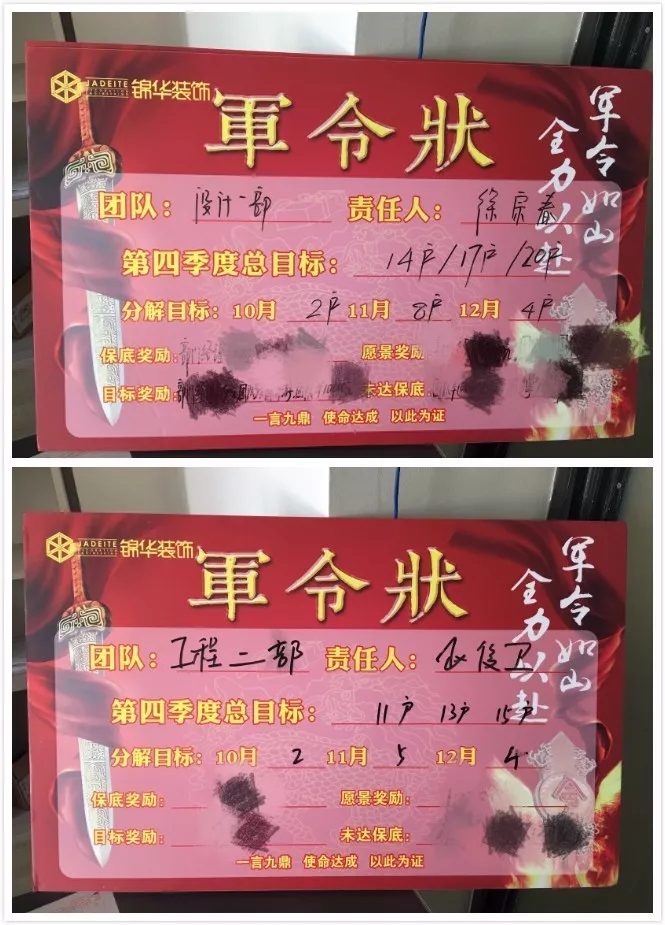 JADEITE 锦华装饰
軍令狀
军令如山
全力以赴
团队：设计一部 责任人：徐宗春
第四季度总目标：14户/17户/20户
分解目标：10月 2户 11月 8户 12月 4户
保底奖励： 愿景奖励
目标奖励： 未达保底
一言九鼎 使命达成 以此为证
JADEITE 锦华装饰
軍令狀
军令如山
全力以赴
团队：工程二部 责任人：赵俊卫
第四季度总目标：11户 13户 15户
分解目标：10月 2 11月 5 12月 4
保底奖励： 愿景奖励：
目标奖励： 未达保底：
一言九鼎 使命达成 以此为证